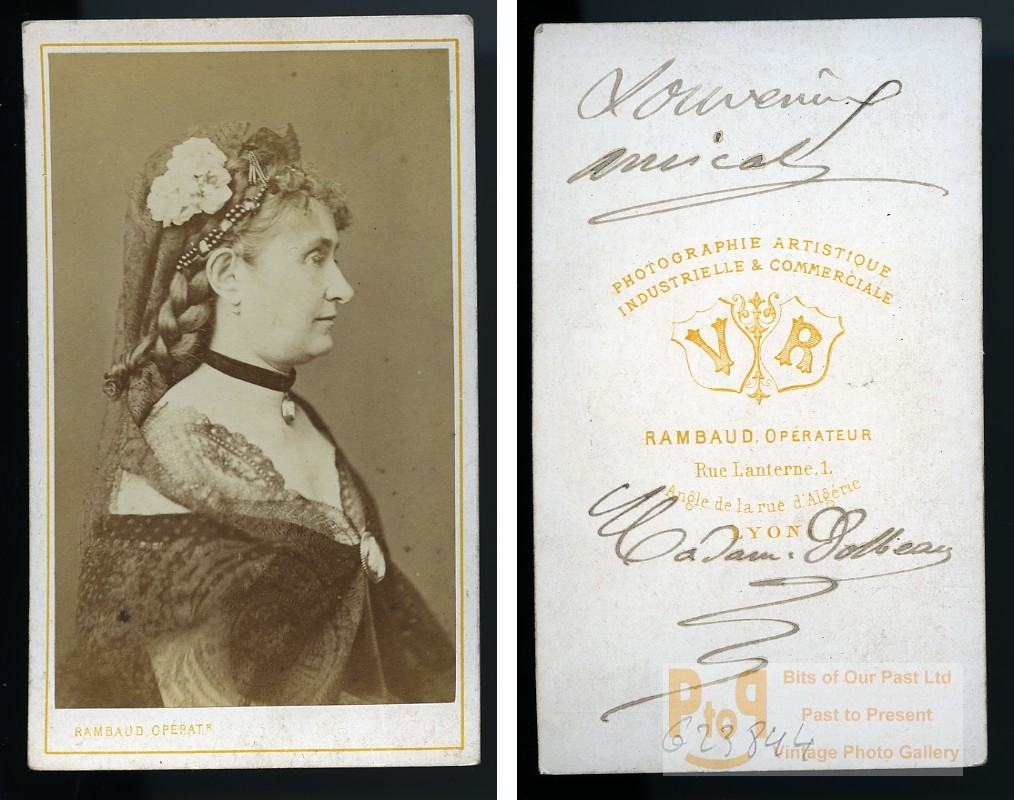 RAMBAUD, OPÉRATR
Souvenir
amical
PHOTOGRAPHIE ARTISTIQUE
INDUSTRIELLE & COMMERCIALE
V R
RAMBAUD, OPÉRATEUR
Rue Lanterne, 1,
Angle de la rue d'Algérie
LYON
Madame Dolbeau
PtoP
Bits of Our Past Ltd
Past to Present
Vintage Photo Gallery
G23844